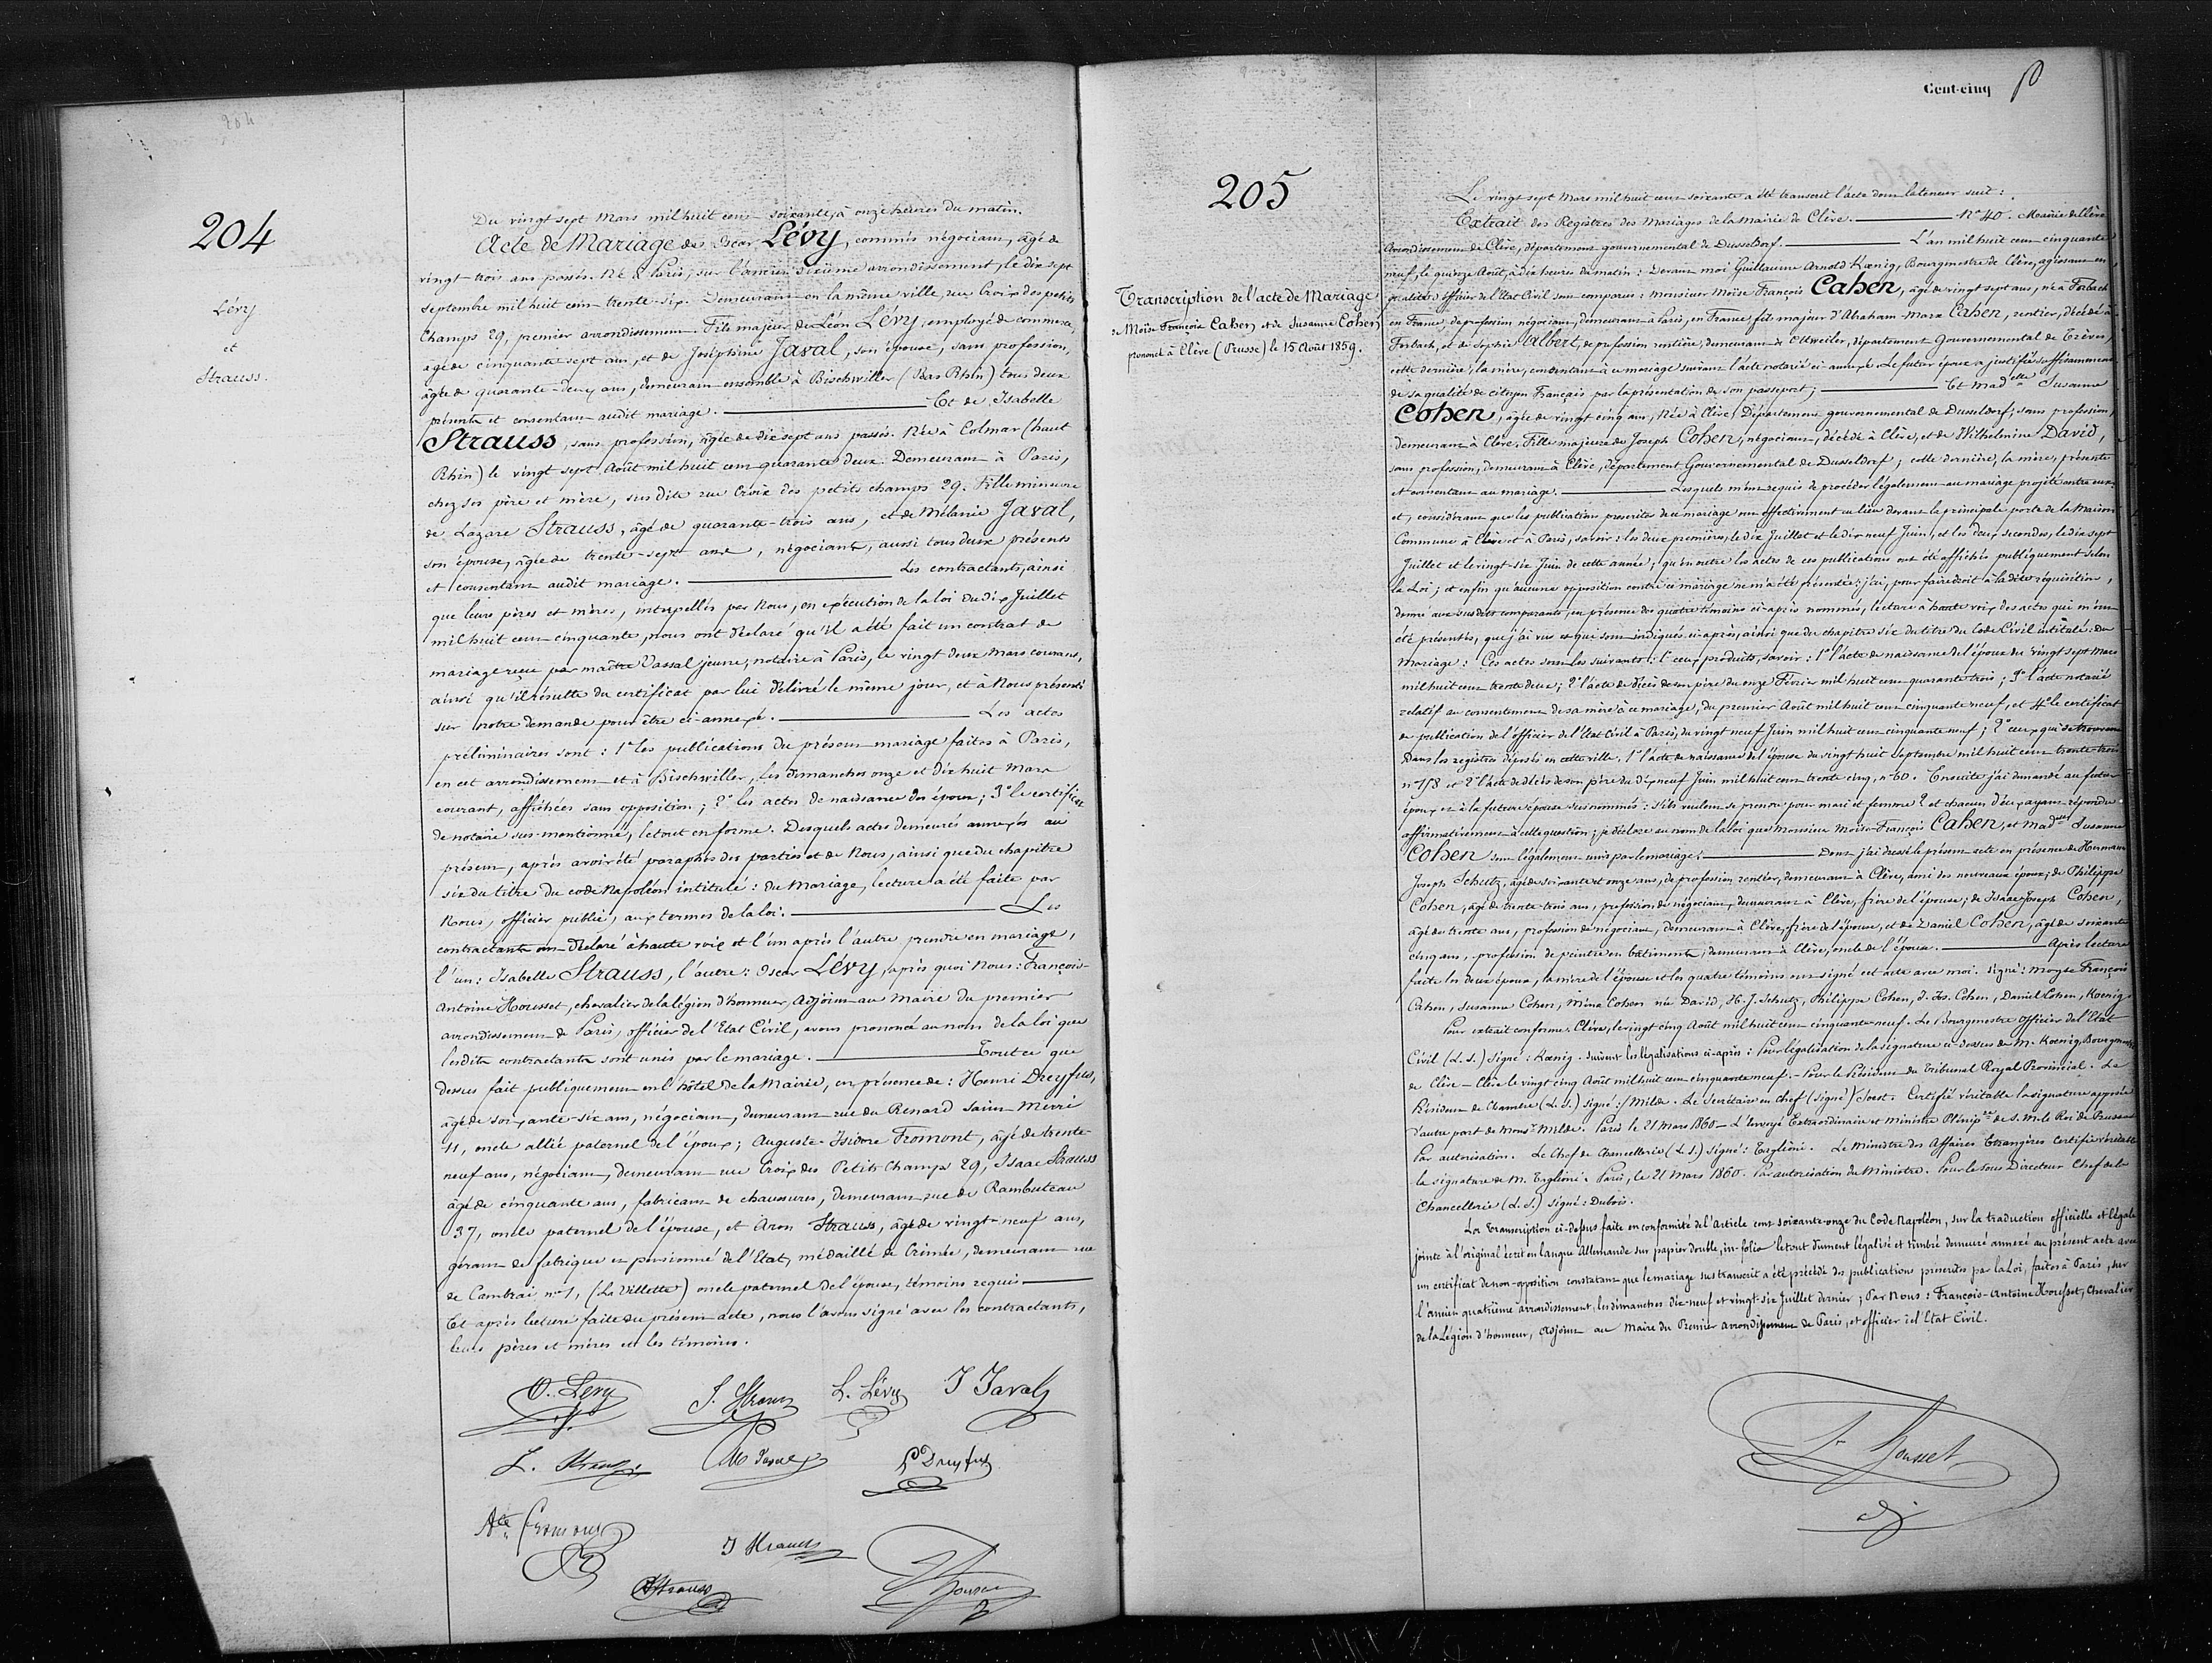 204
204
Lévy
et
Strauss.
Du vingt sept Mars mil huit cent soixante, à onze heures du matin.
Acte de Mariage de Oscar Lévy, commis négociant, âgé de
vingt-trois ans passés. Né à Paris, sur l'ancien sixième arrondissement, le dix sept
septembre mil huit cent trente-six. Demeurant en la même ville, rue Croix des petits
Champs 29, premier arrondissement. Fils majeur de Léon Lévy, employé de commerce,
âgé de cinquante sept ans, et de Joséphine Javal, son épouse, sans profession,
âgée de quarante-deux ans, demeurant ensemble à Bischwiller (Bas Rhin) tous deux
présents et consentant audit mariage. ——— Et de Isabelle
Strauss, sans profession, âgée de dix sept ans passés. Née à Colmar (haut
Rhin) le vingt sept Août mil huit cent quarante deux. Demeurant à Paris,
chez ses père et mère, susdite rue Croix des petits champs 29. Fille mineure
de Lazare Strauss, âgé de quarante-trois ans, et de Mélanie Javal,
son épouse, âgée de trente-sept ans, négociants, aussi tous deux présents
et consentant audit mariage. ——— Les contractants, ainsi
que leurs pères et mères, interpellés par Nous, en exécution de la loi du dix Juillet
mil huit cent cinquante, nous ont déclaré qu'il a été fait un contrat de
mariage reçu par maître Vassal jeune, notaire à Paris, le vingt deux Mars courant,
ainsi qu'il résulte du certificat par lui délivré le même jour, et à Nous présenté
sur notre demande pour être ci-annexé. ——— Les actes
préliminaires sont : 1° les publications du présent mariage faites à Paris,
en cet arrondissement et à Bischwiller, les dimanches onze et dix huit Mars
courant, affichées sans opposition ; 2° les actes de naissance des époux ; 3° le certificat
de notaire sus-mentionné, le tout en forme. Desquels actes demeurés annexés au
présent, après avoir été paraphés des parties et de Nous, ainsi que du chapitre
six du titre du code Napoléon intitulé : du Mariage, lecture a été faite par
Nous, officier public, aux termes de la loi. ——— Les
contractants ont déclaré à haute voix et l'un après l'autre prendre en mariage,
l'un : Isabelle Strauss, l'autre : Oscar Lévy, après quoi Nous : François-
Antoine Housset, chevalier de la légion d'honneur, Adjoint au Maire du premier
arrondissement de Paris, officier de l'Etat Civil, avons prononcé au nom de la loi que
lesdits contractants sont unis par le mariage. ——— Tout ce que
dessus fait publiquement en l'hôtel de la Mairie, en présence de : Henri Dreyfus,
âgé de soixante-six ans, négociant, demeurant rue du Renard Saint Merri
11, oncle allié paternel de l'époux ; Auguste-Isidore Fromont, âgé de trente-
neuf ans, négociant, demeurant rue Croix des Petits Champs 29, Isaac Strauss
âgé de cinquante ans, fabricant de chaussures, demeurant rue de Rambuteau
37, oncle paternel de l'épouse, et Aron Strauss, âgé de vingt-neuf ans,
gérant de fabrique et pensionné de l'Etat, médaillé de Crimée, demeurant rue
de Cambrai n° 1, (La Villette) oncle paternel de l'épouse, témoins requis ———
Et après lecture faite du présent acte, nous l'avons signé avec les contractants,
leurs pères et mères et les témoins.
O. Levy
I. Strauss
L. Lévy
J Javal
L. Strauss
M Javal
H Dreyfus
Ate Fromont
I Strauss
A Strauss
Housset
Cent-cinq
205
Transcription de l'acte de Mariage
de Moïse François Cahen et de Susanne Cohen
prononcé à Clève (Prusse) le 15 Août 1859.
Le vingt sept Mars mil huit cent soixante a été transcrit l'acte dont la teneur suit :
Extrait des Registres des Mariages de la Mairie de Clève. ——— N° 40. Mairie de Clève
Arrondissement de Clève, département gouvernemental de Dusseldorf. ——— L'an mil huit cent cinquante
neuf, le quinze Août, à dix heures du matin : Devant moi Guillaume Arnold Kœnig, Bourgmestre de Clève, agissant en
qualité d'officier de l'Etat Civil sont comparus : Monsieur Moïse François Cahen, âgé de vingt sept ans, né à Forbach
en France, de profession négociant, demeurant à Paris, en France fils majeur d'Abraham Marx Cahen, rentier, décédé à
Forbach, et de Sophie Albert, de profession rentière, demeurant à Ottweiler, département Gouvernemental de Trèves,
cette dernière, la mère, consentant à ce mariage suivant l'acte notarié ci-annexé. Le futur époux a justifié suffisamment
de sa qualité de citoyen Français par la présentation de son passeport ; ——— Et Madelle Susanne
Cohen, âgée de vingt cinq ans, Née à Clève, Département gouvernemental de Dusseldorf ; sans profession,
demeurant à Clève. Fille majeure de Joseph Cohen, négociant, décédé à Clève, et de Wilhelmine David,
sans profession, demeurant à Clève, département Gouvernemental de Dusseldorf ; cette dernière, la mère, présente
et consentant au mariage. ——— Lesquels m'ont requis de procéder légalement au mariage projeté entre eux
et, considérant que les publications prescrites de ce mariage ont effectivement eu lieu devant la principale porte de la Maison
Commune à Clève et à Paris, savoir : les deux premières, le dix Juillet et le dix neuf Juin, et les deux secondes, le dix sept
Juillet et le vingt-six Juin de cette année ; qu'en outre les actes de ces publications ont été affichés publiquement selon
la Loi ; et enfin qu'aucune opposition contre ce mariage ne m'a été présentée ; j'ai, pour faire droit à la dite réquisition,
donné aux susdits comparants, en présence des quatre témoins ci-après nommés, lecture à haute voix des actes qui m'ont
été présentés, que j'ai vus et qui sont indiqués ci-après, ainsi que du chapitre six du titre du Code Civil intitulé : du
Mariage : Ces actes sont les suivants : 1° ceux produits, savoir : 1° l'acte de naissance de l'époux du vingt sept Mars
mil huit cent trente deux ; 2° l'acte de décès de son père du onze Février mil huit cent quarante trois ; 3° l'acte notarié
relatif au consentement de sa mère à ce mariage, du premier Août mil huit cent cinquante neuf, et 4° le certificat
de publication de l'officier de l'Etat Civil à Paris, du vingt neuf Juin mil huit cent cinquante neuf ; 2° ceux qui se trouvent
Dans les registres déposés en cette ville. 1° l'acte de naissance de l'épouse du vingt huit Septembre mil huit cent trente-trois
n° 178 et 2° l'acte de décès de son père du dix neuf Juin mil huit cent trente cinq, n° 60. Ensuite j'ai demandé au futur
époux et à la future épouse susnommés : s'ils veulent se prendre pour mari et femme ? et chacun d'eux ayant répondu
affirmativement à cette question ; je déclare au nom de la loi que Monsieur Moïse-François Cahen, et Madelle Susanne
Cohen sont légalement unis par le mariage. ——— Dont j'ai dressé le présent acte en présence de Hermann
Joseph Schutz, âgé de soixante et onze ans, de profession rentier, demeurant à Clève, ami des nouveaux époux ; de Philippe
Cohen, âgé de trente-trois ans, profession de négociant, demeurant à Clève, frère de l'épouse ; de Isaac Joseph Cohen,
âgé de trente ans, profession de négociant, demeurant à Clève, frère de l'épouse, et de Daniel Cohen, âgé de soixante
cinq ans, profession de peintre en bâtiments, demeurant à Clève, oncle de l'épouse. ——— Après lecture
faite les deux époux, la mère de l'épouse et les quatre témoins ont signé cet acte avec moi. Signé : Moyse François
Cahen, Susanne Cohen, Mina Cohen née David, H. J. Schutz, Philippe Cohen, J. Jos. Cohen, Daniel Cohen, Koenig.
Pour extrait conforme. Clève, le vingt cinq Août mil huit cent cinquante-neuf. Le Bourgmestre officier de l'Etat
Civil (L. S.) Signé : Kœnig. Suivent les légalisations ci-après : Pour légalisation de la signature ci-dessus de M. Koenig Bourgmestre
de Clève - Clève le vingt cinq Août mil huit cent cinquante neuf. - Pour le Président du Tribunal Royal Provincial. Le
Président de Chambre (L. S.) signé : Milde. Le Secrétaire en Chef (signé) Joest. Certifié véritable la signature apposée
d'autre part de Monsr Milde. Paris le 21 Mars 1860 - L'Envoyé Extraordinaire et Ministre Plénipre de S. M. le Roi de Prusse
Par autorisation. Le Chef de Chancellerie (L. S.) Signé : Taglioni. Le Ministre des Affaires Etrangères Certifie véritable
la signature de M. Taglioni. Paris, le 21 Mars 1860. Par autorisation du Ministre. Pour le Sous Directeur Chef de la
Chancellerie (L. S.) signé : Dubois.
La transcription ci-dessus faite en conformité de l'Article cent soixante-onze du Code Napoléon, sur la traduction officielle et légale
jointe à l'original écrit en langue Allemande sur papier double, in-folio le tout dûment légalisé et timbré demeuré annexé au présent acte avec
un certificat de non-opposition constatant que le mariage sus transcrit a été précédé des publications prescrites par la Loi, faites à Paris, sur
l'ancien quatrième arrondissement, les dimanches dix-neuf et vingt-six Juillet dernier ; Par Nous : François-Antoine Housset, Chevalier
de la Légion d'honneur, Adjoint au Maire du Premier arrondissement de Paris, et officier de l'Etat Civil.
Housset